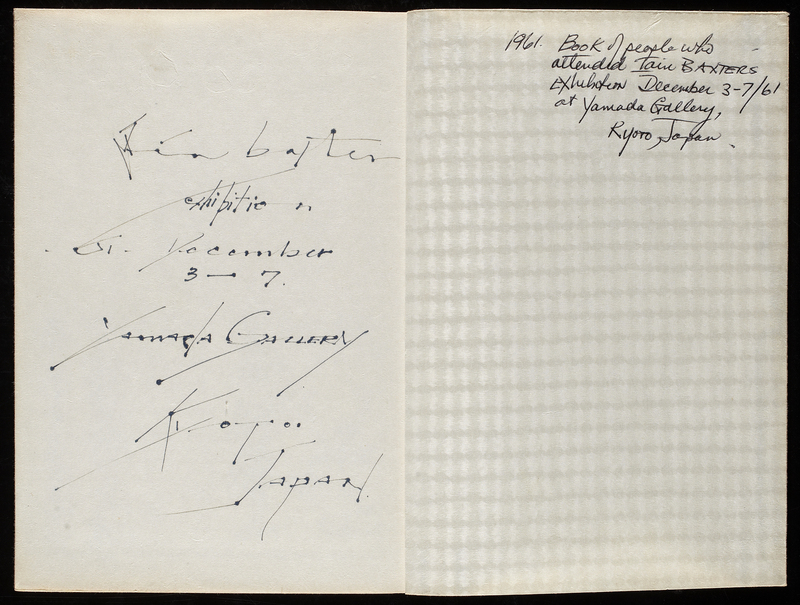 Ien baxter
exhibition
61. December
3 — 7.
Yamada Gallery
Kioto
Japan.
1961. Book of people who
attended Iain BAXTERS
Exhibition December 3-7/61
at Yamada Gallery,
Kyoto, Japan.